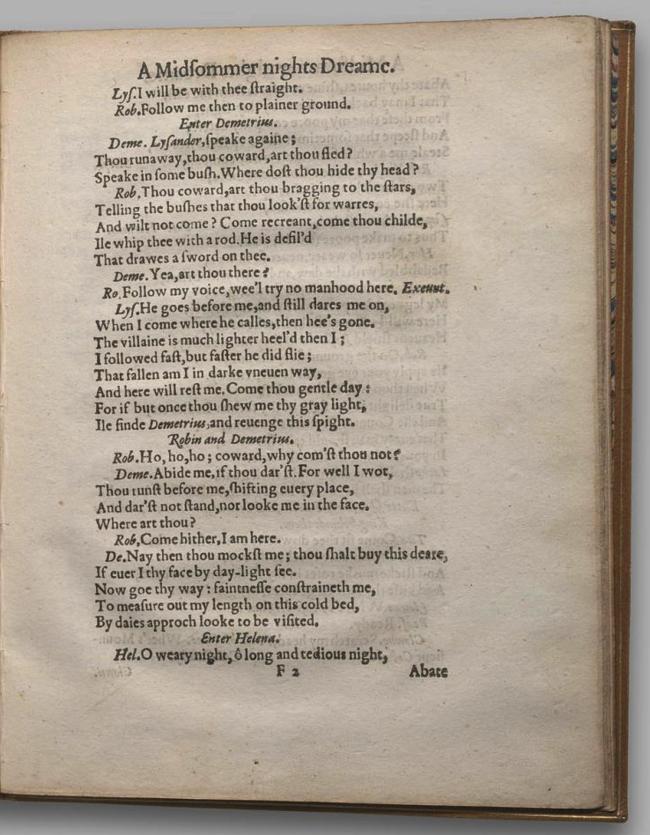 A Midſommer nights Dreame.
Lyſ. I will be with thee ſtraight.
Rob. Follow me then to plainer ground.
Enter Demetrius.
Deme. Lyſander, ſpeake againe;
Thou runaway, thou coward, art thou fled?
Speake in ſome buſh. Where doſt thou hide thy head?
Rob. Thou coward, art thou bragging to the ſtars,
Telling the buſhes that thou look'ſt for warres,
And wilt not come? Come recreant, come thou childe,
Ile whip thee with a rod. He is defil'd
That drawes a ſword on thee.
Deme. Yea, art thou there?
Ro. Follow my voice, wee'l try no manhood here. Exeunt.
Lyſ. He goes before me, and ſtill dares me on,
When I come where he calles, then hee's gone.
The villaine is much lighter heel'd then I;
I followed faſt, but faſter he did flie;
That fallen am I in darke vneuen way,
And here will reſt me. Come thou gentle day:
For if but once thou ſhew me thy gray light,
Ile finde Demetrius, and reuenge this ſpight.
Robin and Demetrius.
Rob. Ho, ho, ho; coward, why com'ſt thou not?
Deme. Abide me, if thou dar'ſt. For well I wot,
Thou runſt before me, ſhifting euery place,
And dar'ſt not ſtand, nor looke me in the face.
Where art thou?
Rob. Come hither, I am here.
De. Nay then thou mockſt me; thou ſhalt buy this deare,
If euer I thy face by day-light ſee.
Now goe thy way: faintneſſe conſtraineth me,
To meaſure out my length on this cold bed,
By daies approch looke to be viſited.
Enter Helena.
Hel. O weary night, ô long and tedious night,
F 2 Abate